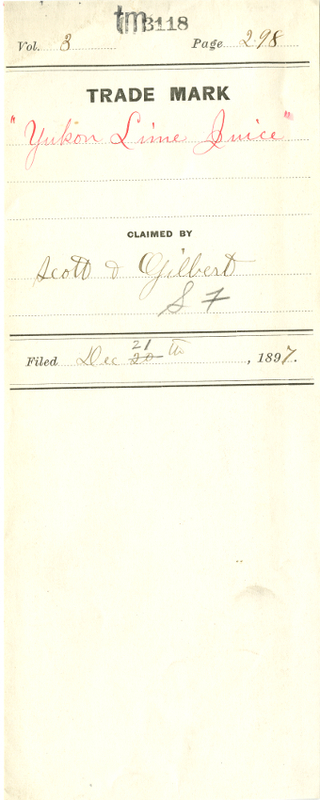 tm3118
Vol. 3 Page 298
TRADE MARK
"Yukon Lime Juice"
CLAIMED BY
Scott & Gilbert
S F
Filed Dec 21 20 th, 1897.